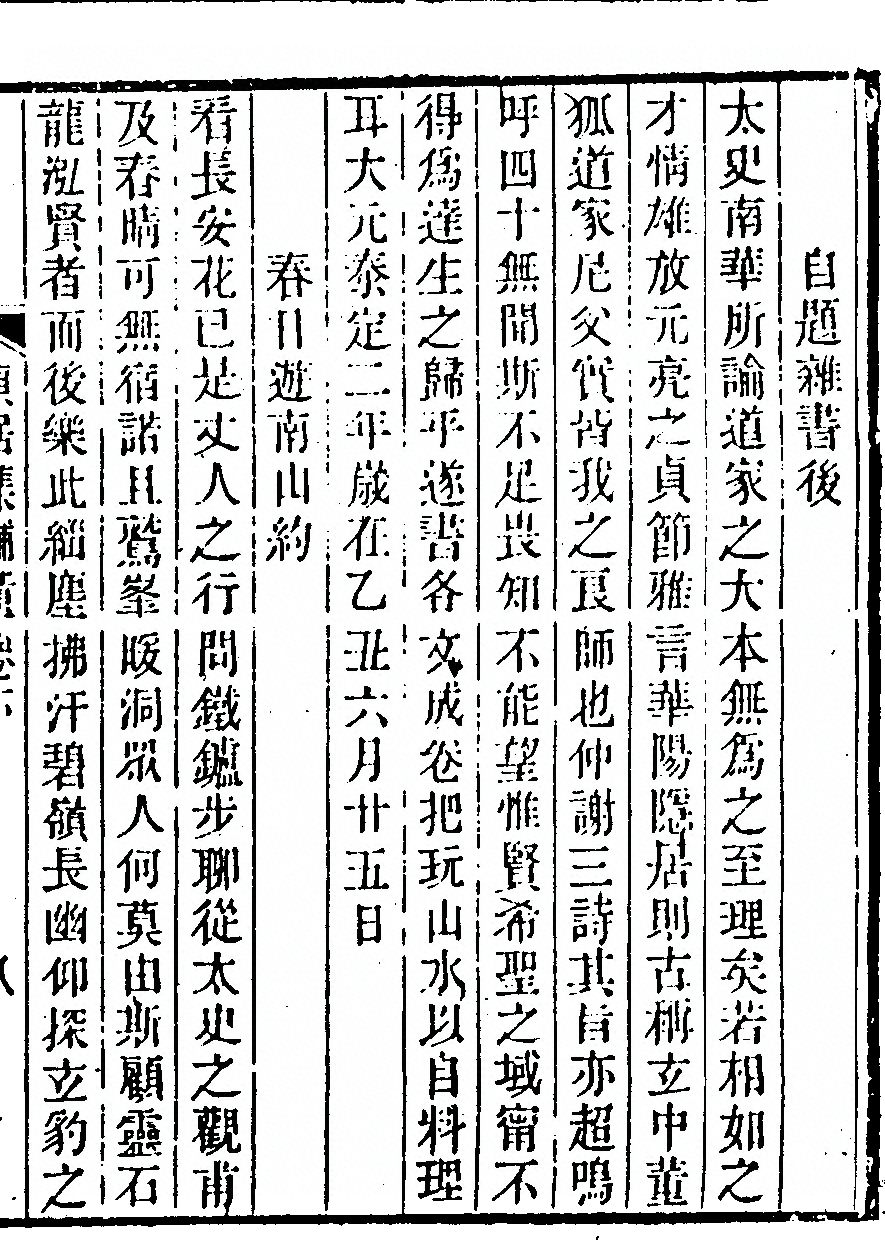 自題雜書後
太史南華所論道家之大本無爲之至理矣若相如之
才情雄放元亮之貞節雅言華陽隱居則古稱玄中董
狐道家尼父實皆我之良師也仲謝三詩其旨亦超鳴
呼四十無聞斯不足畏知不能望惟賢希聖之域甯不
得爲達生之歸乎遂書各文成卷把玩山水以自料理
耳大元泰定二年歲在乙丑六月廿五日
春日遊南山約
看長安花已是丈人之行問鐵鑪步聊從太史之觀甫
及春晴可無宿諾且鷲峯暖洞眾人何莫由斯顧靈石
龍泓賢者而後樂此緇塵拂汗碧嶺長幽仰探玄豹之